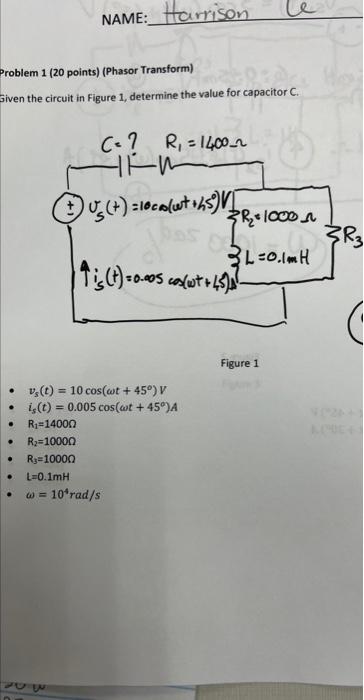 NAME: Harrison Le
Problem 1 (20 points) (Phasor Transform)
Given the circuit in Figure 1, determine the value for capacitor C.
C=? R₁=1400Ω
± υₛ(t)=10cos(ωt+45°)V
R₂=1000Ω
R₃
L=0.1mH
↑iₛ(t)=0.005 cos(ωt+45°)A
Figure 1
• vₛ(t) = 10 cos(ωt + 45°) V
• iₛ(t) = 0.005 cos(ωt + 45°)A
• R₁=1400Ω
• R₂=1000Ω
• R₃=1000Ω
• L=0.1mH
• ω = 10⁴rad/s